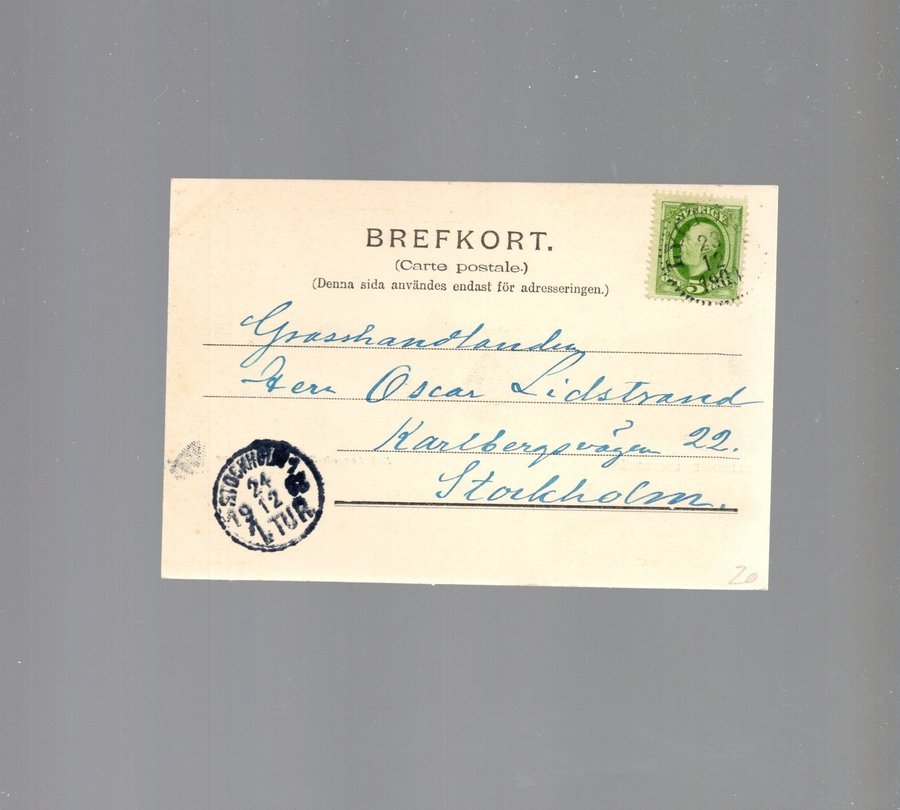 BREFKORT.
(Carte postale.)
(Denna sida användes endast för adresseringen.)
SVERIGE
5
Grosshandlanden
Herr Oscar Lidstrand
Karlbergsvägen 22.
Stockholm.
STOCKHOLM 1
24
19 12
1. TUR
20